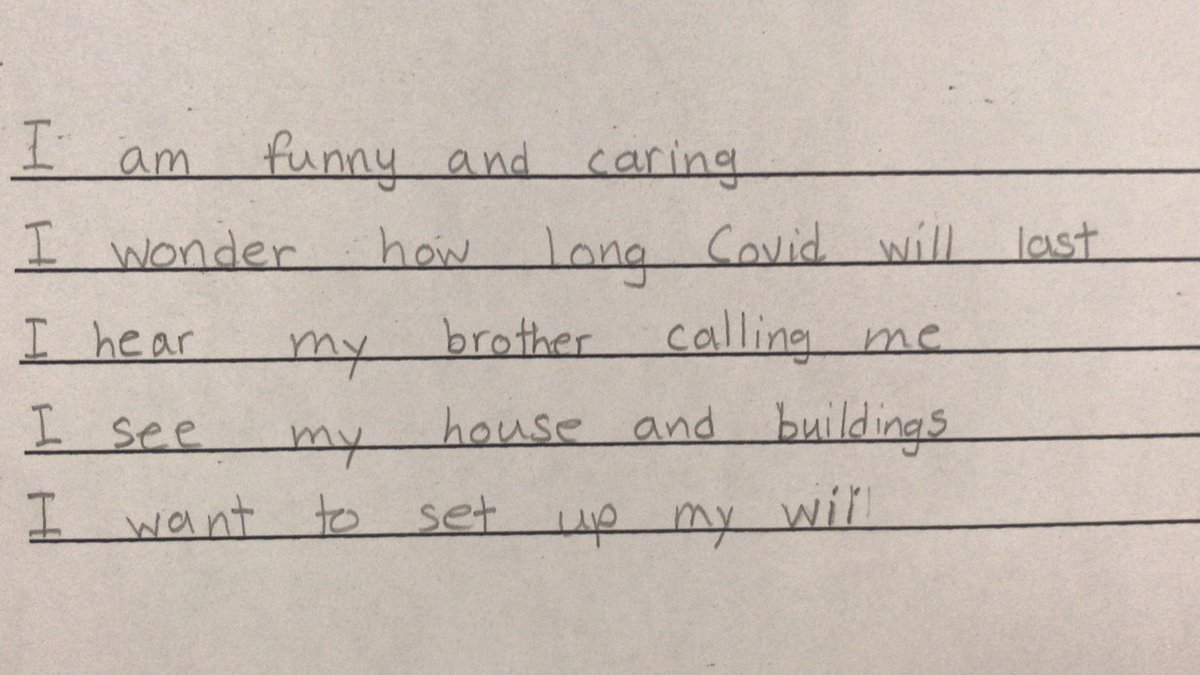 I am funny and caring
I wonder how long Covid will last
I hear my brother calling me
I see my house and buildings
I want to set up my will